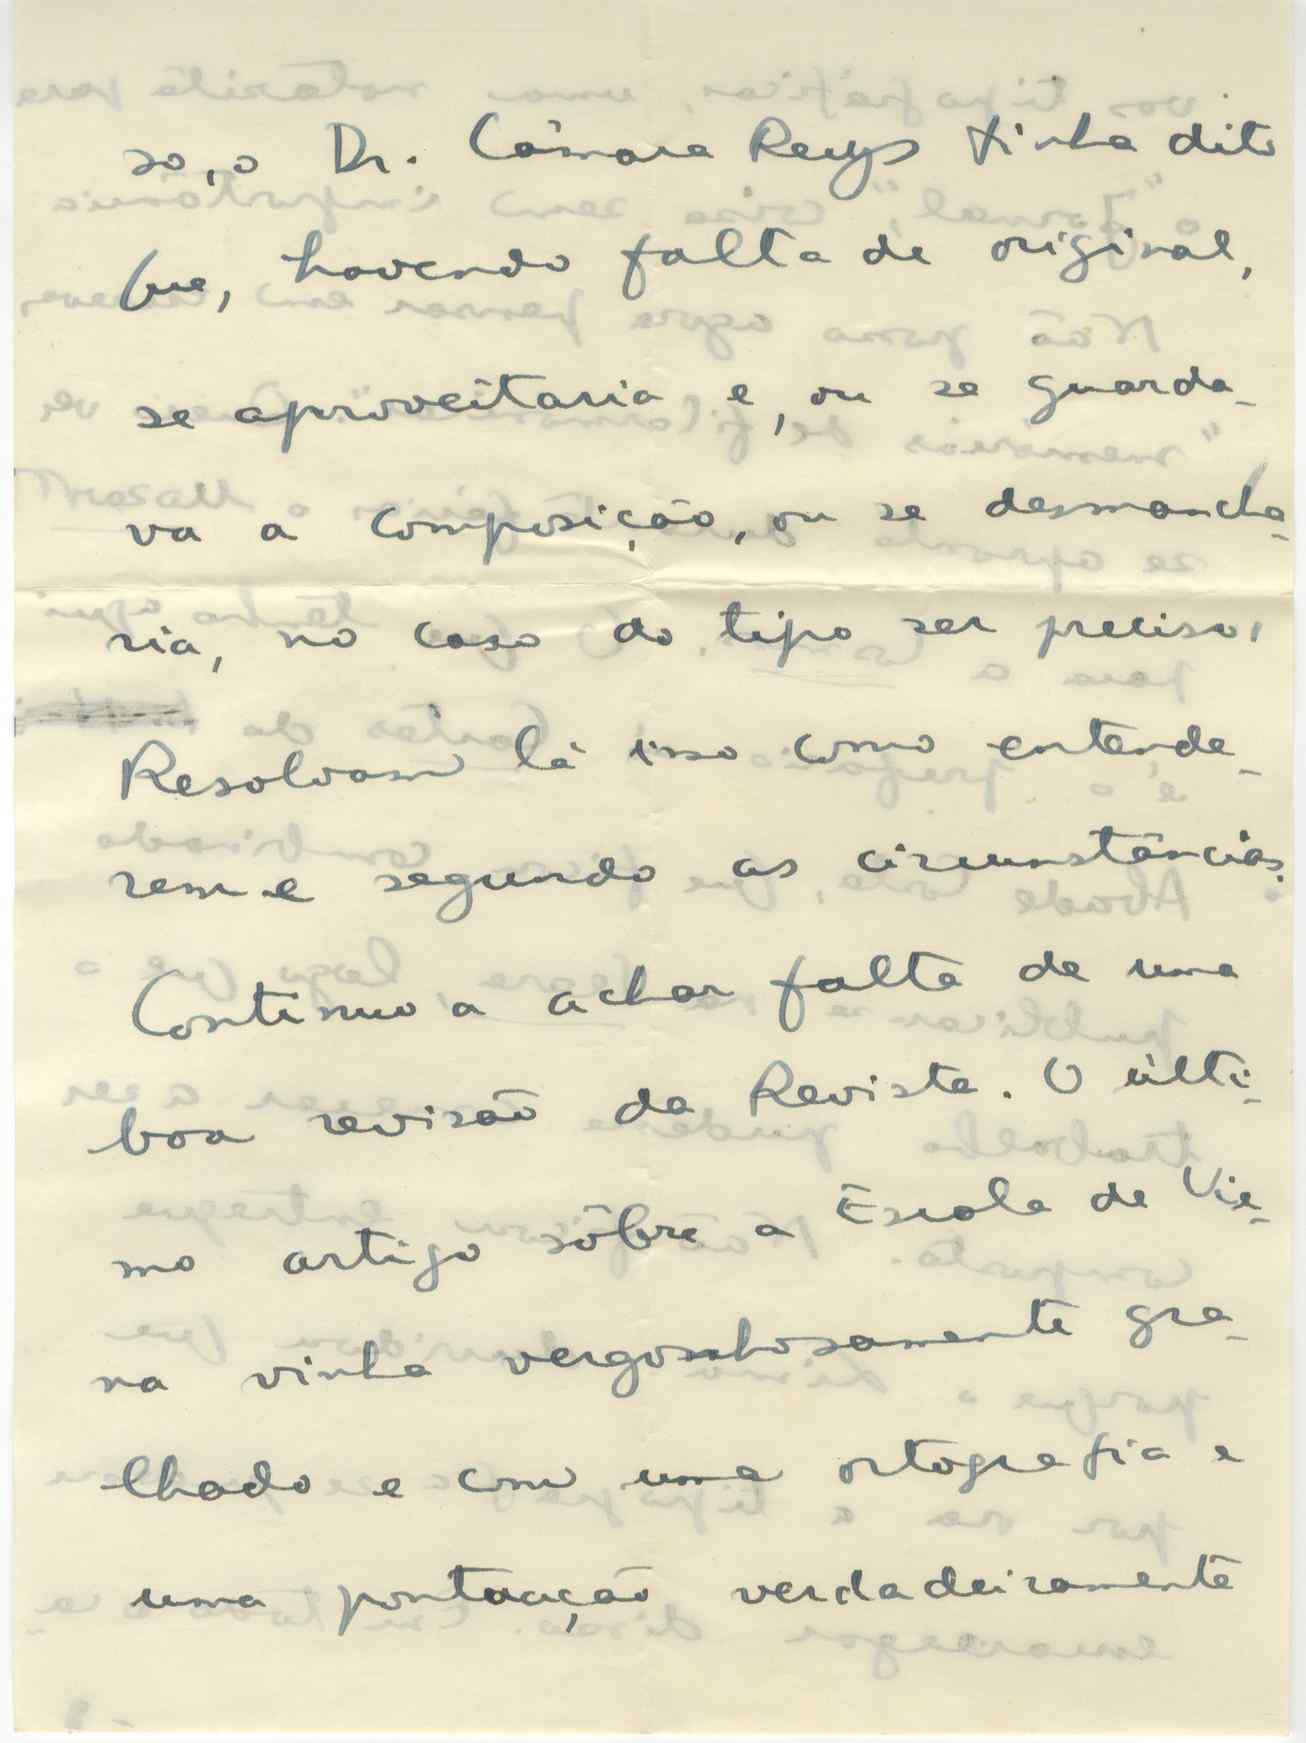 so, o Dr. Câmara Reys tinha dito
que, havendo falta de original,
se aproveitaria e, ou se guarda-
va a composição, ou se desmancha-
ria, no caso do tipo ser preciso.
Resolvam lá isso como entende-
rem e segundo as circunstâncias.
Continuo a achar falta de uma
boa revisão da Revista. O últi-
mo artigo sôbre a Escola de Vie-
na vinha vergonhosamente gra-
lhado e com uma ortografia e
uma pontuação verdadeiramente